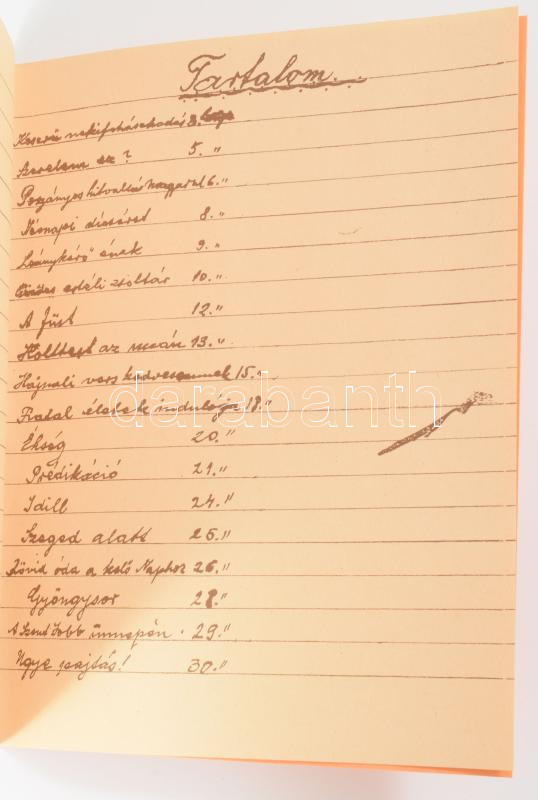 Tartalom.
Keserű nekifohászkodás 3. lap
Szerelem ez? 5. "
Pogányos hitvallás magyarul 6. "
Névnapi dicséret 8. "
"Leánykérő" ének 9. "
erdéli zsoltár 10. "
A Füst 12. "
Holttest az uccán 13. "
Hajnali vers kedvesemnek 15. "
Fiatal életek indulója 18. "
Éhség 20. "
Prédikáció 21. "
Idill 24. "
Szeged alatt 25. "
Rövid óda a kelő Naphoz 26. "
Gyöngysor 28. "
A Szent Jobb ünnepén 29. "
Ugye pajtás! 30. "
darabanth